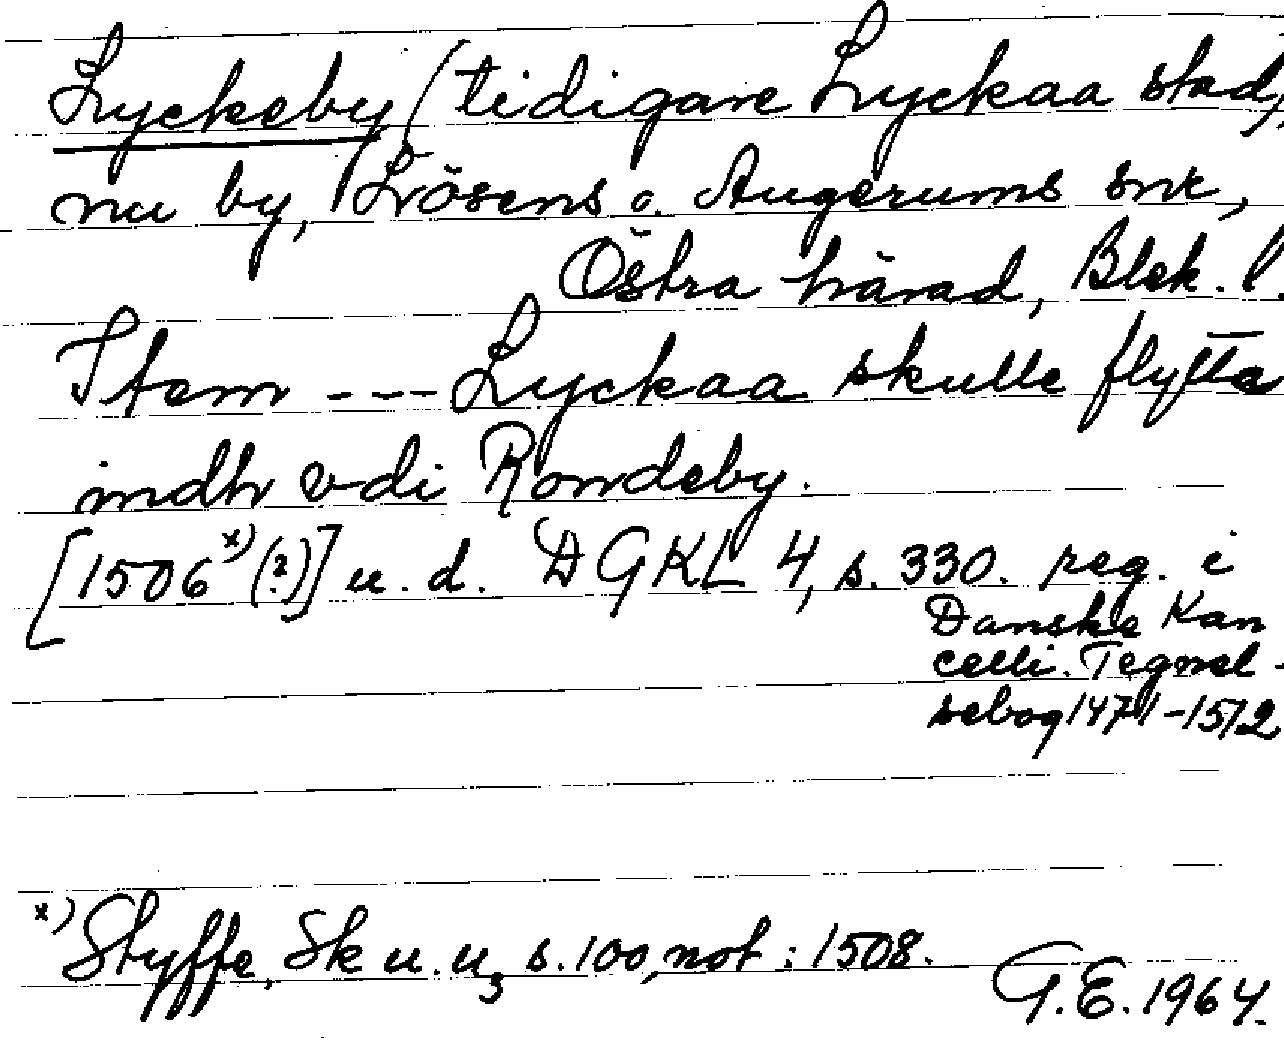 Lyckeby (tidigare Lyckaa stad,
nu by, Lösens o. Augerums snr,
Östra härad, Blek. l.
Item --- Lyckaa skulle flytte
indh vdi Rondeby.
[1506 x) (?)] u. d. DGKL 4, s. 330. reg. i
Danske Kan
celli. Tegnel-
sebog 1471-1512
x) Styffe, Sk u. u, s. 100, not : 1508.
G.E. 1964.